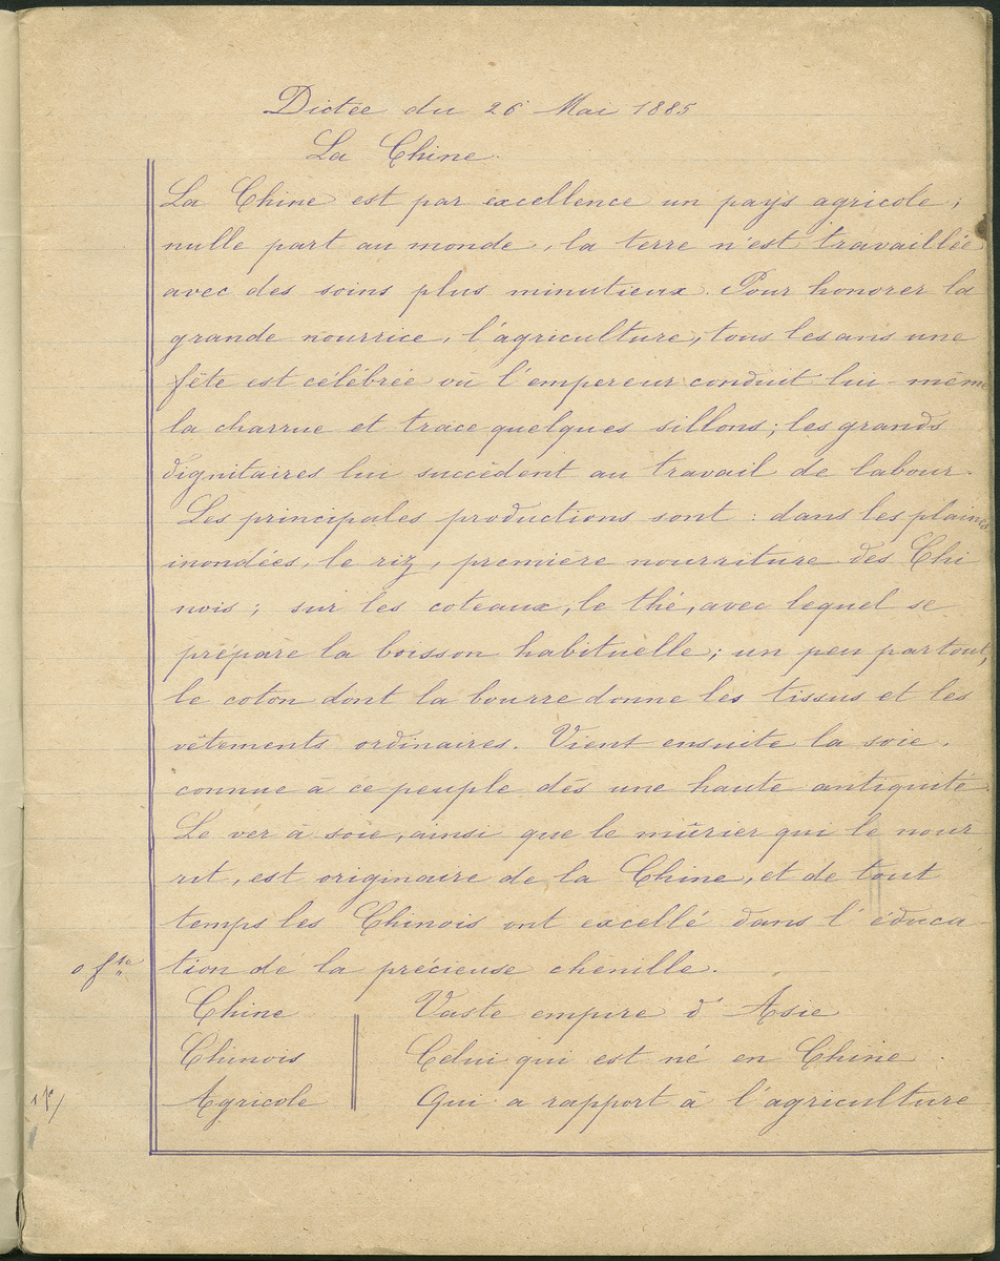 Dictée du 26 Mai 1885
La Chine.
La Chine est par excellence un pays agricole ;
nulle part au monde, la terre n'est travaillée
avec des soins plus minutieux. Pour honorer la
grande nourrice, l'agriculture, tous les ans une
fête est célébrée où l'empereur conduit lui-même
la charrue et trace quelques sillons ; les grands
dignitaires lui succèdent au travail de labour.
Les principales productions sont : dans les plaines
inondées, le riz, première nourriture des Chi
nois ; sur les coteaux, le thé, avec lequel se
prépare la boisson habituelle ; un peu partout,
le coton dont la bourre donne les tissus et les
vêtements ordinaires. Vient ensuite la soie,
connue à ce peuple dès une haute antiquité.
Le ver à soie, ainsi que le mûrier qui le nour
rit, est originaire de la Chine, et de tout
temps les Chinois ont excellé dans l'éduca
o fte tion de la précieuse chenille.
Chine Vaste empire d'Asie
Chinois Celui qui est né en Chine.
Agricole Qui a rapport à l'agriculture